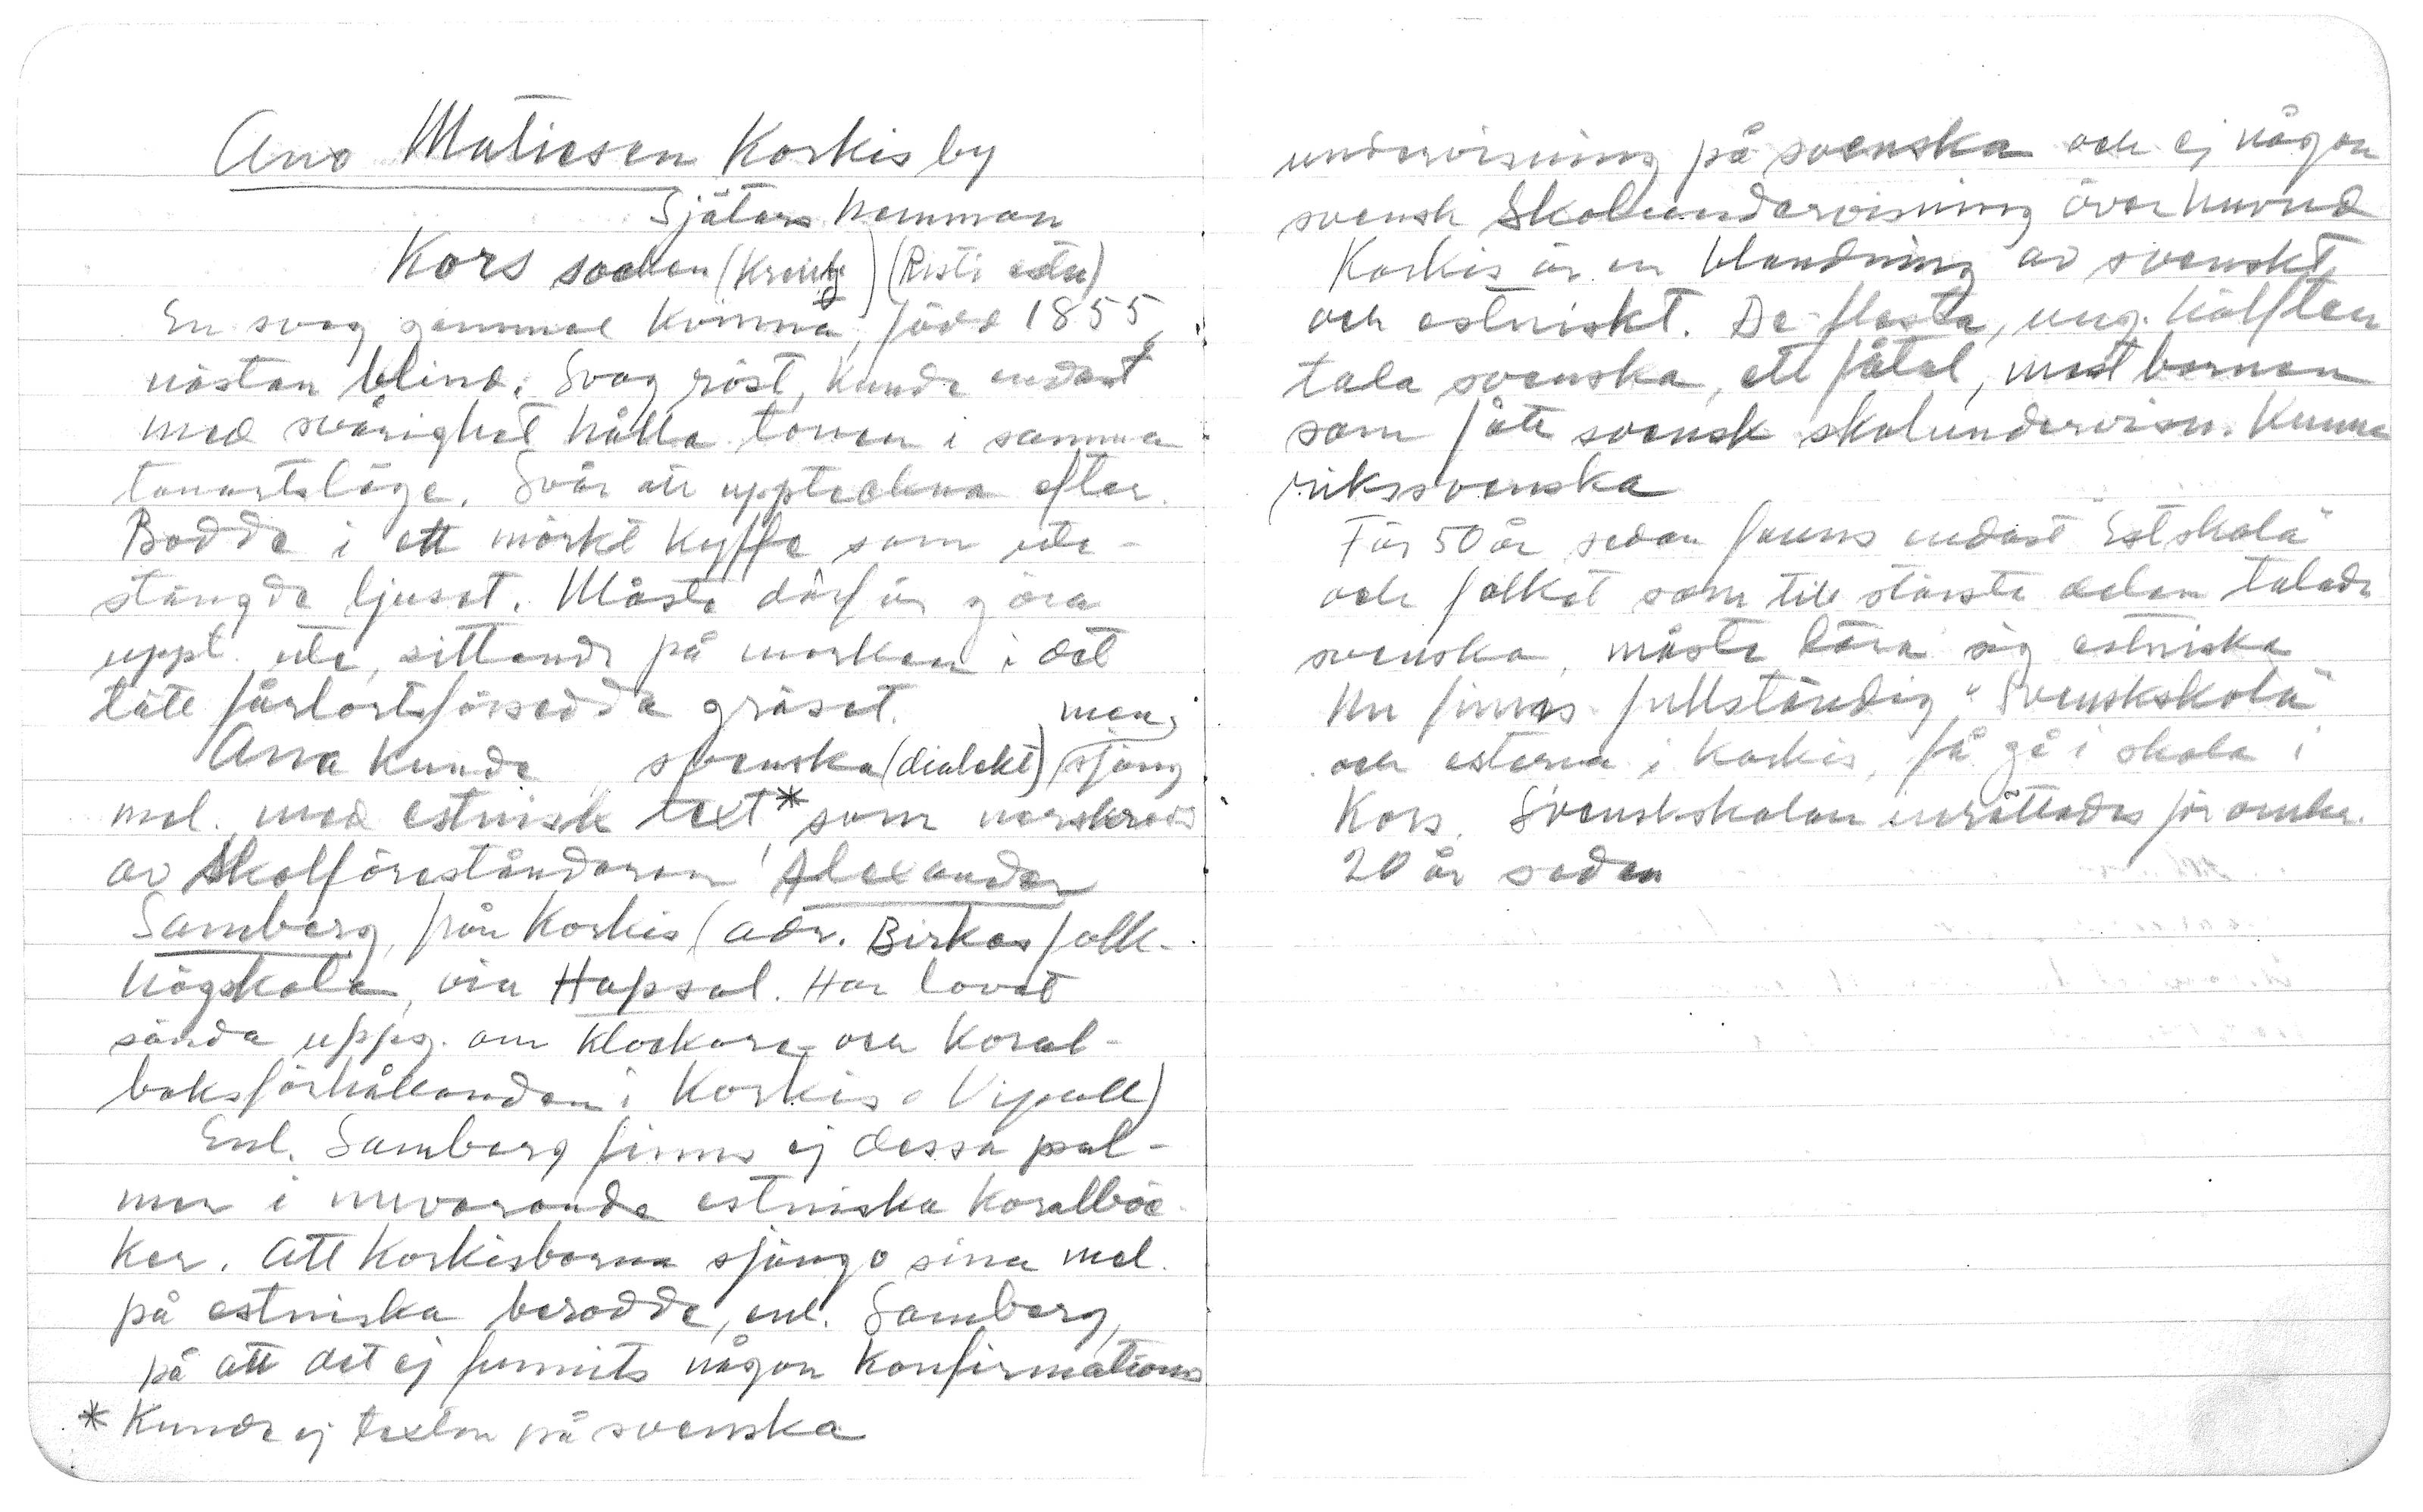 Ano Matiesen Korkis by
Sjätars hemman
Kors socken (Kreutz) (Risti estn)
En svag gammal kvinna, född 1855,
nästan blind. Svag röst, kunde endast
med svårighet hålla tonen i samma
tonartsläge. Svår att uppteckna efter.
Bodde i ett mörkt kyffe som ute-
stängde ljuset. Måste därför göra
uppt. ute, sittande på marken i det
täta fårlortsförsedda gräset.
Ana kunde svenska (dialekt) men sjöng
mel. med estnisk text* som nerskrevs
av skolföreståndaren Alexander
Samberg, från Korkis (adr. Birkas folk-
högskola, via Hapsal. Har lovat
sända uppg. om klockare och koral-
boksförhållanden i Korkis o Vippall)
Enl. Samberg finns ej dessa psal-
mer i nuvarande estniska koralböc-
ker. Att Korkisborna sjöngo sina mel.
på estniska berodde, enl. Samberg,
på att det ej funnits någon konfirmations
* Kunde ej texten på svenska
undervisning på svenska och ej någon
svensk skolundervisning överhuvud
Korkis är en blandning av svenskt
och estniskt. De flesta, ung. hälften
tala svenska, ett fåtal, mest barnen
som fått svensk skolundervisn. kunna
rikssvenska
För 50 år sedan fanns endast "Estskola"
och folket som till största delen talade
svenska, måste lära sig estniska
Nu finns fullständig "Svenskskola"
och esterna i Korkis, få gå i skola i
Kors. Svenskskolan inrättades för omkr.
20 år sedan